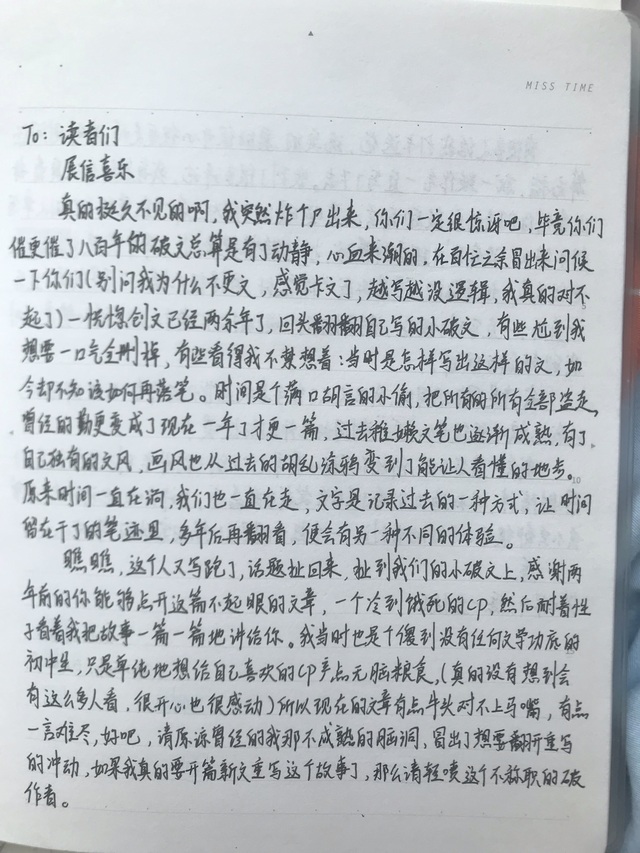 MISS TIME
To：读者们
展信喜乐
真的挺久不见的啊，我突然炸个尸出来，你们一定很惊讶吧，毕竟你们
催更催了八百年的破文总算是有了动静，心血来潮的，在百忙之余冒出来问候
一下你们（别问我为什么不更文，感觉卡文了，越写越没逻辑，我真的对不
起了）一恍惚创文已经两余年了，回头翻翻自己写的小破文，有些尬到我
想要一口气全删掉，有些看得我不禁想着：当时是怎样写出这样的文，如
今却不知该如何再落笔。时间是个满口胡言的小偷，把所有的所有全部盗走，
曾经的勤更变成了现在一年了才更一篇，过去稚嫩文笔也逐渐成熟，有了
自己独有的文风，画风也从过去的胡乱涂鸦变到了能让人看懂的地步。
原来时间一直在淌，我们也一直在走，文字是记录过去的一种方式，让时间
留在干了的笔迹里，多年后再翻看，便会有另一种不同的体验。
瞧瞧，这个人又写跑了，话题扯回来，扯到我们的小破文上，感谢两
年前的你能够点开这篇不起眼的文章，一个冷到饿死的CP，然后耐着性
子看着我把故事一篇一篇地讲给你。我当时也是个傻到没有任何文学功底的
初中生，只是单纯地想给自己喜欢的CP产点无脑粮食，（真的没有想到会
有这么多人看，很开心也很感动）所以现在的文章有点牛头对不上马嘴，有点
一言难尽，好吧，请原谅曾经的我那不成熟的脑洞，冒出了想要翻开重写
的冲动，如果我真的要开篇新文重写这个故事了，那么请轻喷这个不称职的破
作者。